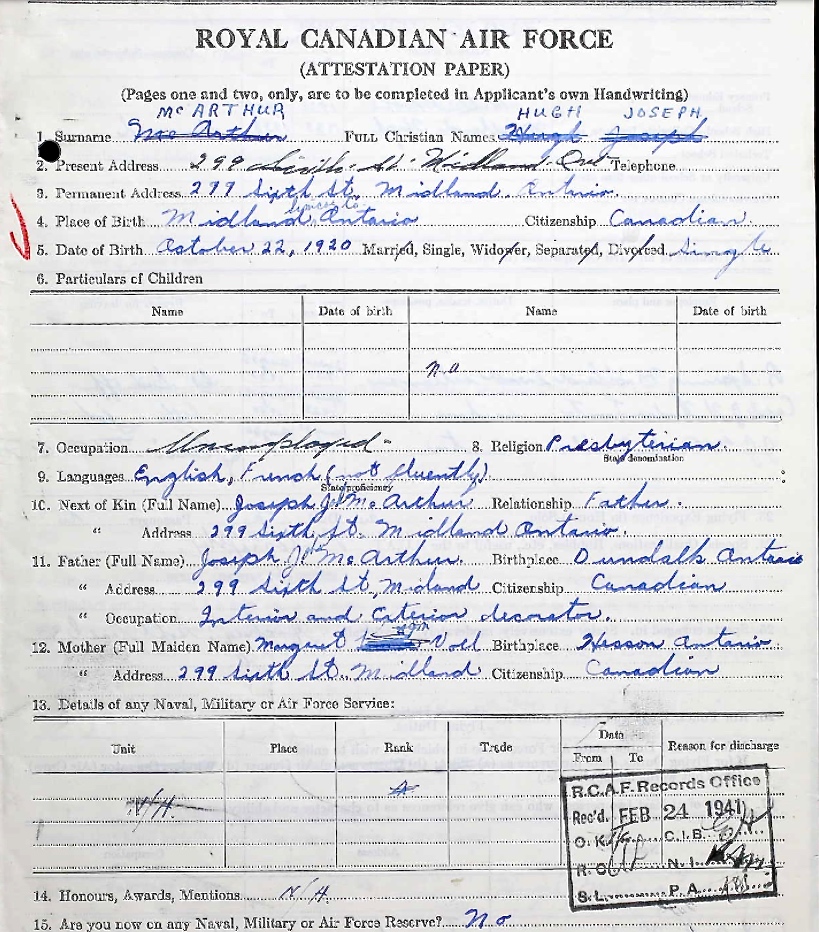 ROYAL CANADIAN AIR FORCE
(ATTESTATION PAPER)
(Pages one and two, only, are to be completed in Applicant's own Handwriting)
McARTHUR HUGH JOSEPH
1. Surname McArthur FULL Christian Names Hugh Joseph
2. Present Address 299 Sixth St. Midland. Ont Telephone
3. Permanent Address 299 Sixth St, Midland Ontario.
4. Place of Birth Midland Ontario Citizenship Canadian.
5. Date of Birth October 22, 1920 Married, Single, Widower, Separated, Divorced Single
6. Particulars of Children
Name Date of birth Name Date of birth
n.a
7. Occupation Unemployed- 8. Religion Presbyterian.
State denomination
9. Languages English, French (not fluently)
State proficiency
10. Next of Kin (Full Name) Joseph J. McArthur Relationship Father.
" Address 299 Sixth St. Midland Ontario.
11. Father (Full Name) Joseph J. McArthur. Birthplace Dundalk Ontario
" Address 299 Sixth St, Midland Citizenship Canadian
" Occupation Interior and Exterior decorator.
12. Mother (Full Maiden Name) Margaret Voll Birthplace Hesson Ontario.
" Address 299 Sixth St., Midland Citizenship Canadian
13. Details of any Naval, Military or Air Force Service:
Unit Place Rank Trade Date From To Reason for discharge
N/A.
R.C.A.F. Records Office
Rec'd. FEB 24 1941
O.K. C.I.B.
R.O. N.I.
S.L. P.A.
14. Honours, Awards, Mentions N/A
15. Are you now on any Naval, Military or Air Force Reserve? No